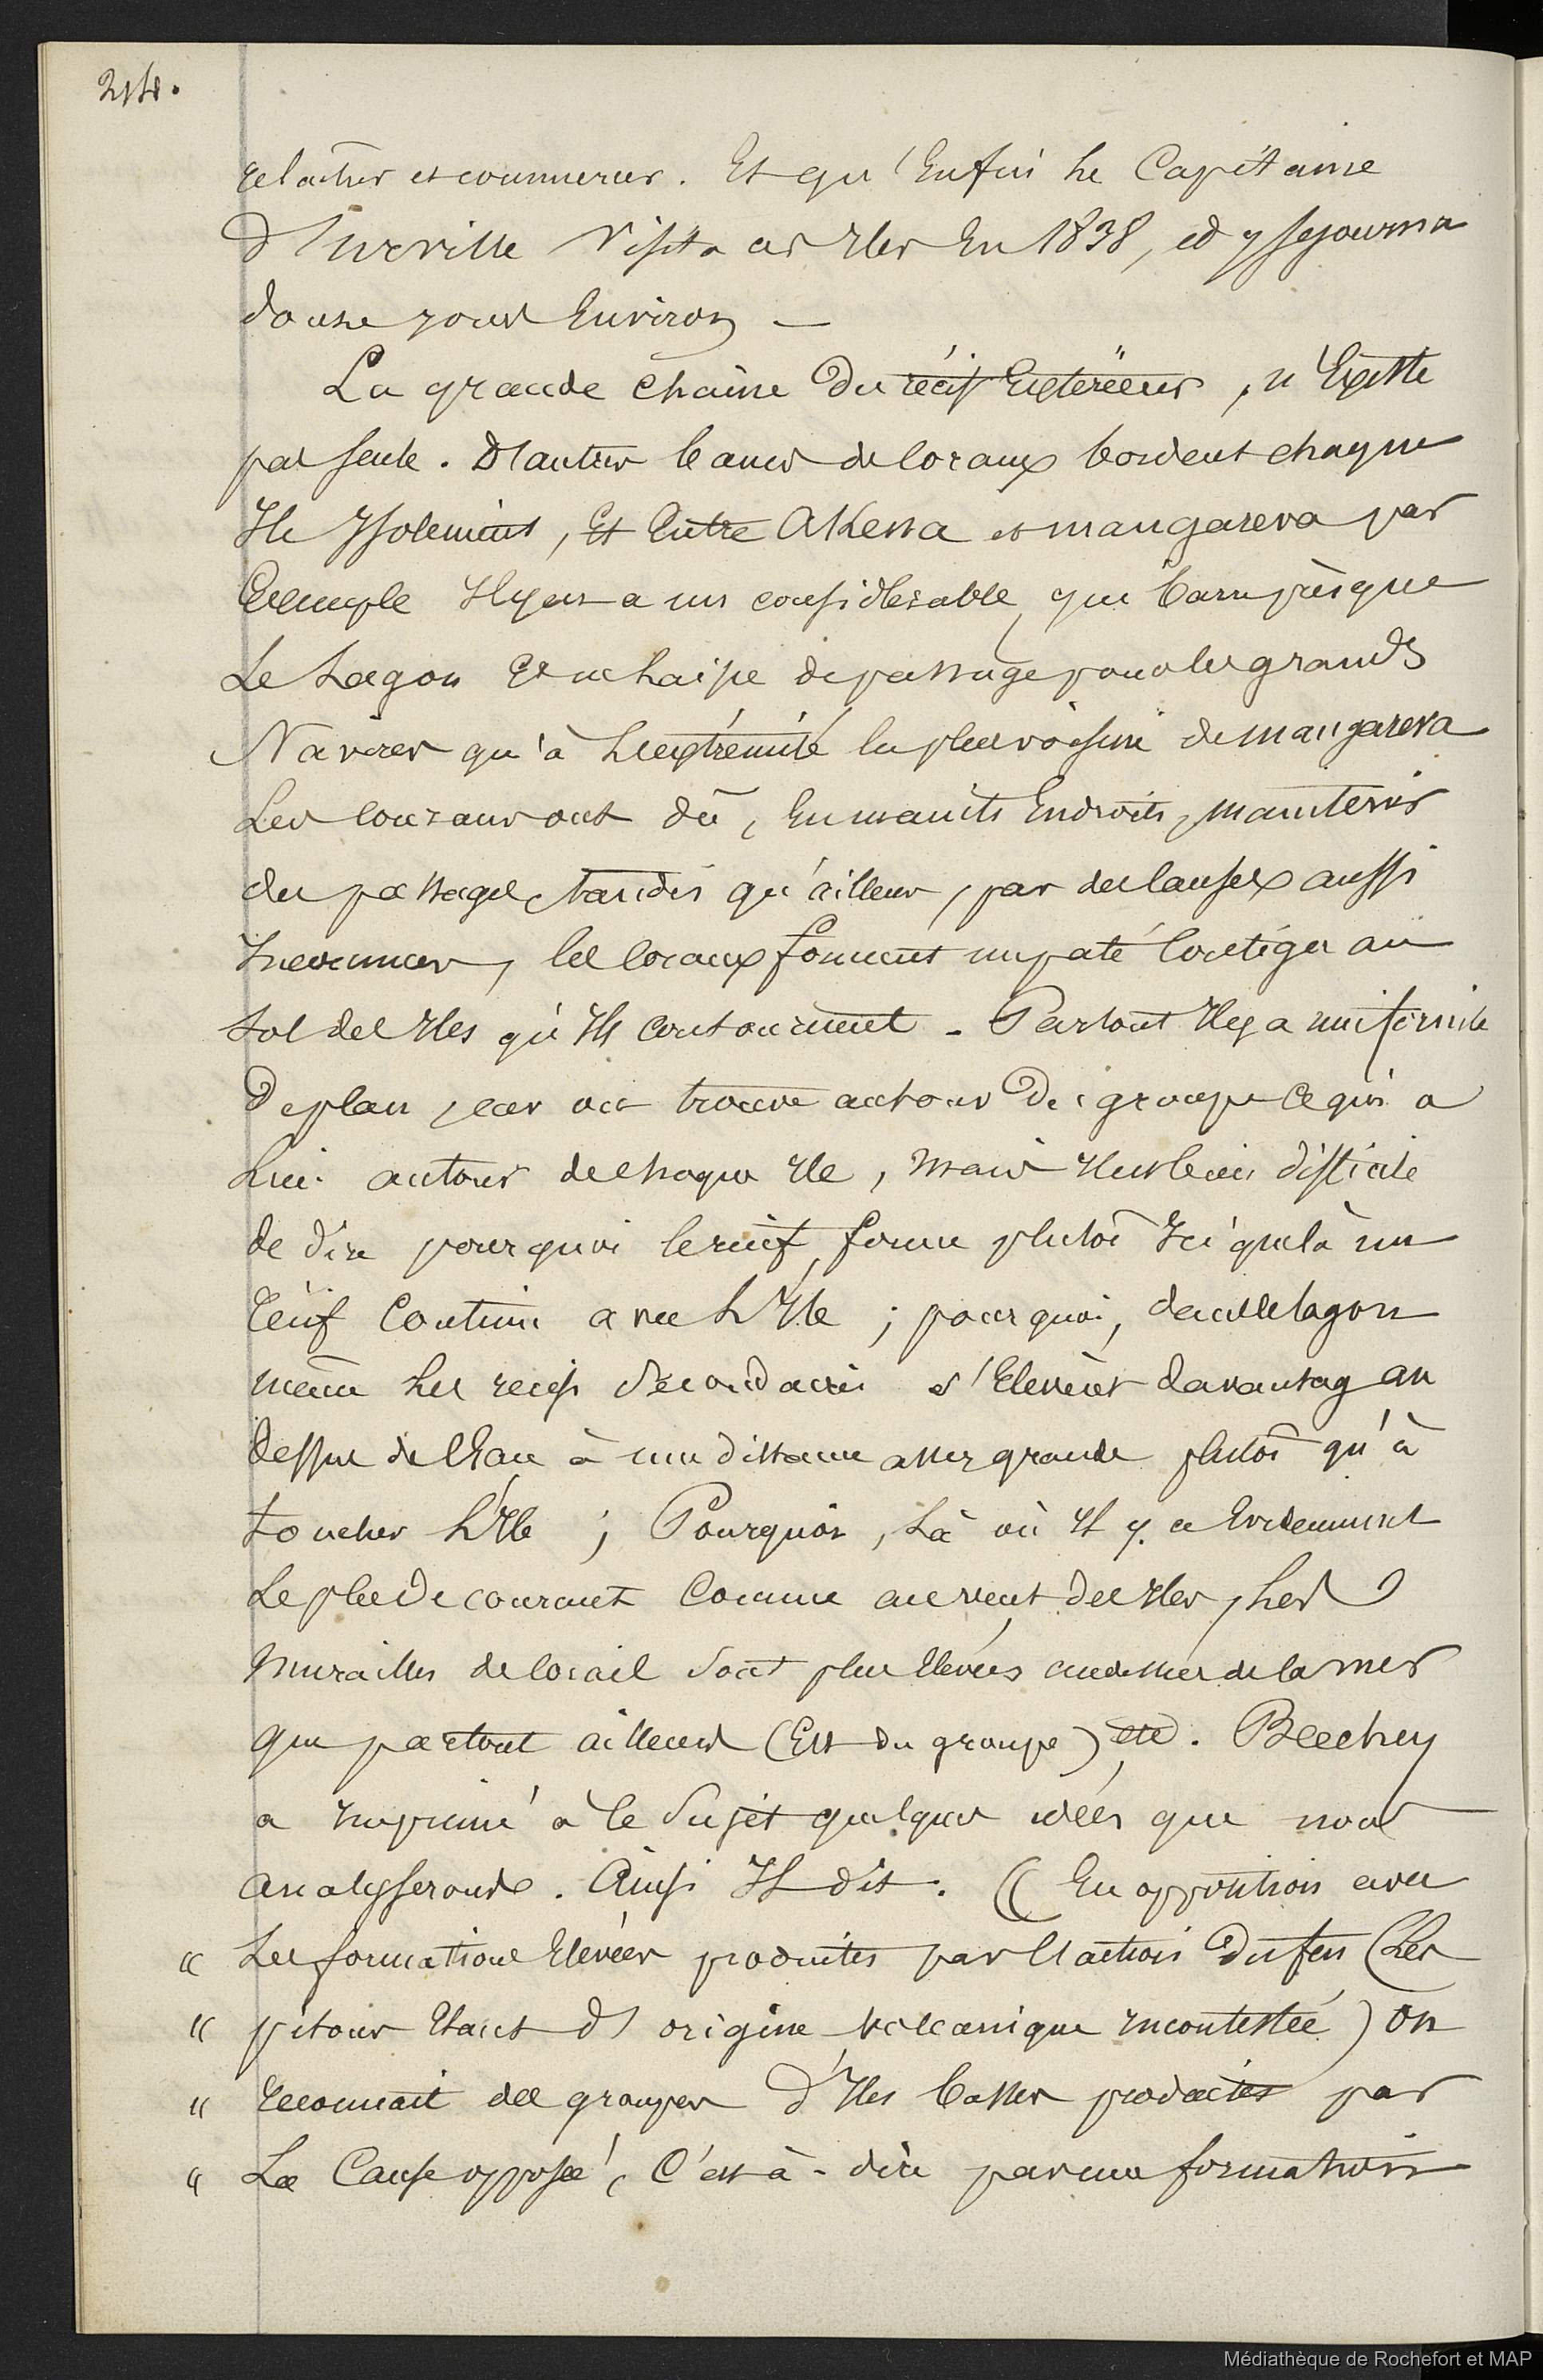 214.
relacher et commercer. Et qu'Enfin Le Capitaine
d'Urville Visita ces Iles En 1838, et y sejourna
douze jours Environ —
La grande chaine Du récif Extérieur, n'Existe
pas seule. D'autres bancs de coraux bordent chaque
Ile Isolement, Et Entre AKena et mangareva par
Exemple Il y en a un considérable, qui barre presque
Le Lagon Et ne Laisse de passage pour les grands
Navires qu'à L'extrémité la plus voisine de mangareva
Les courans ont dû, En maints Endroits, maintenir
des passages, tandis qu'ailleurs, par des causes aussi
Inconnues, les coraux forment un paté Contigu au
sol des Iles qu'Ils Contournent - Partout Il y a uniformité
De plan, car on trouve autour Du groupe Ce qui a
Lieu autour de chaque Ile, mais Il est bien difficile
de dire pourquoi le récif, forme plutôt Ici que là un
récif Continu avec L'Ile ; pourquoi, dans le lagon
même Les récifs Secondaires s'Elevent davantage au
dessus de L'Eau à une distance assez grande plutôt qu'à
toucher L'Ile ; Pourquoi, Là où Il y a Evidemment
Le plus De courant Comme au vent des Iles, Les
Murailles de Corail sont plus Elevées au dessus de la mer
que partout ailleurs (Est du groupe) etc. Beechey
a Imprimé à Ce Sujet quelques idées que nous
analyserons. Ainsi Il dit. (( En opposition avec
" Les formations Elevées produites par L'action Du feu (Les
" pitons Etant d'origine volcanique Incontestée) on
" Reconnait des groupes d'Iles basses produites par
" La Cause opposée, C'est-à-dire par une formation
Médiathèque de Rochefort et MAP